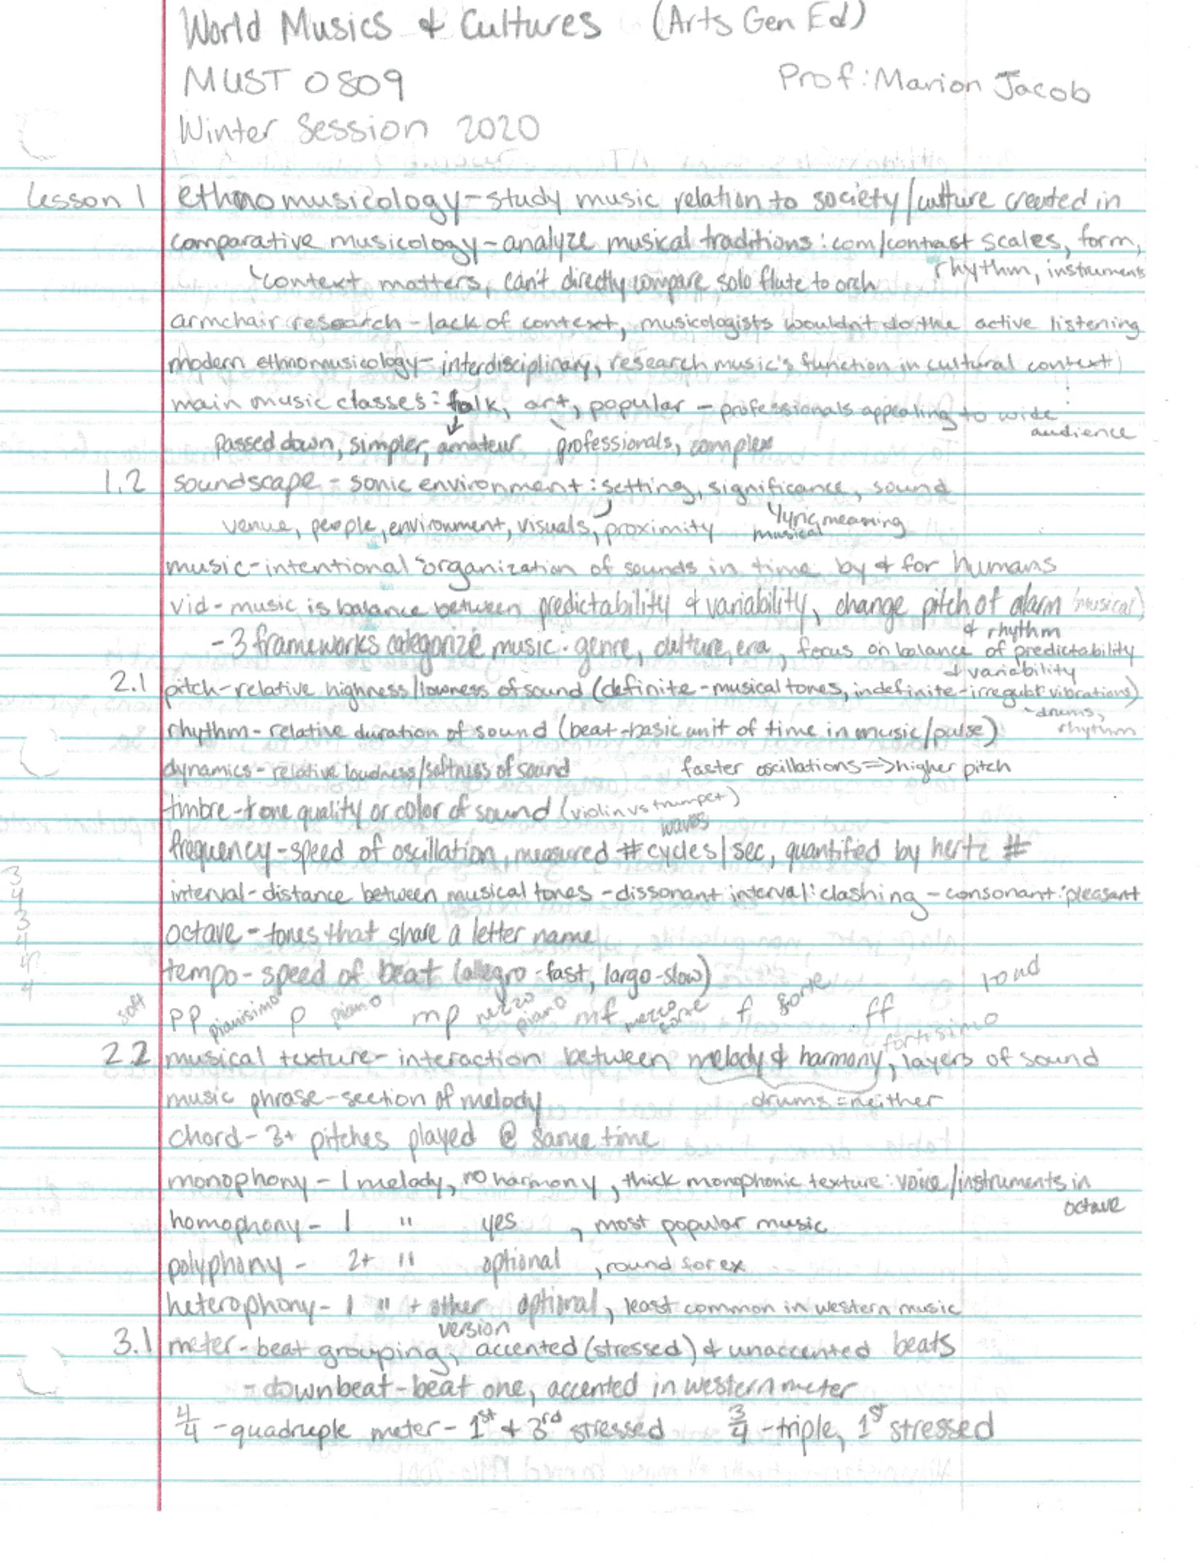 World Musics & Cultures (Arts Gen Ed)
MUST 0809 Prof: Marion Jacob
Winter Session 2020
Lesson 1 ethnomusicology - study music relation to society/culture created in
comparative musicology - analyze musical traditions: com/contrast scales, form,
rhythm, instruments
context matters, can't directly compare solo flute to orch
armchair research - lack of context, musicologists wouldn't do the active listening
modern ethnomusicology - interdisciplinary, research music's function in cultural context
main music classes: folk, art, popular - professionals appealing to wide
audience
passed down, simpler, amateur professionals, complex
1.2 soundscape - sonic environment: setting, significance, sound
venue, people, environment, visuals, proximity lyric, meaning
musical
music - intentional organization of sounds in time by & for humans
vid - music is balance between predictability & variability, change pitch of alarm (musical)
& rhythm
- 3 frameworks categorize music: genre, culture, era, focus on balance of predictability
& variability
2.1 pitch - relative highness/lowness of sound (definite - musical tones, indefinite - irregular vibrations)
- drums,
rhythm
rhythm - relative duration of sound (beat - basic unit of time in music/pulse)
dynamics - relative loudness/softness of sound faster oscillations => higher pitch
timbre - tone quality or color of sound (violin vs trumpet)
waves
frequency - speed of oscillation, measured # cycles/sec, quantified by hertz #
3
4
interval - distance between musical tones - dissonant interval: clashing - consonant: pleasant
3
4
octave - tones that share a letter name
4
4
tempo - speed of beat (allegro - fast, largo - slow)
soft pp pianisimo p piano mp mezzo piano mf mezzo forte f forte ff fortisimo loud
2.2 musical texture - interaction between melody & harmony, layers of sound
drums = neither
music phrase - section of melody
chord - 3+ pitches played @ same time
monophony - 1 melody, no harmony, thick monophonic texture: voice/instruments in
octave
homophony - 1 " yes, most popular music
polyphony - 2+ " optional, round for ex
heterophony - 1 " + other optional, least common in western music
version
3.1 meter - beat grouping, accented (stressed) & unaccented beats
- downbeat - beat one, accented in western meter
4/4 - quadruple meter - 1st & 3rd stressed 3/4 - triple, 1st stressed